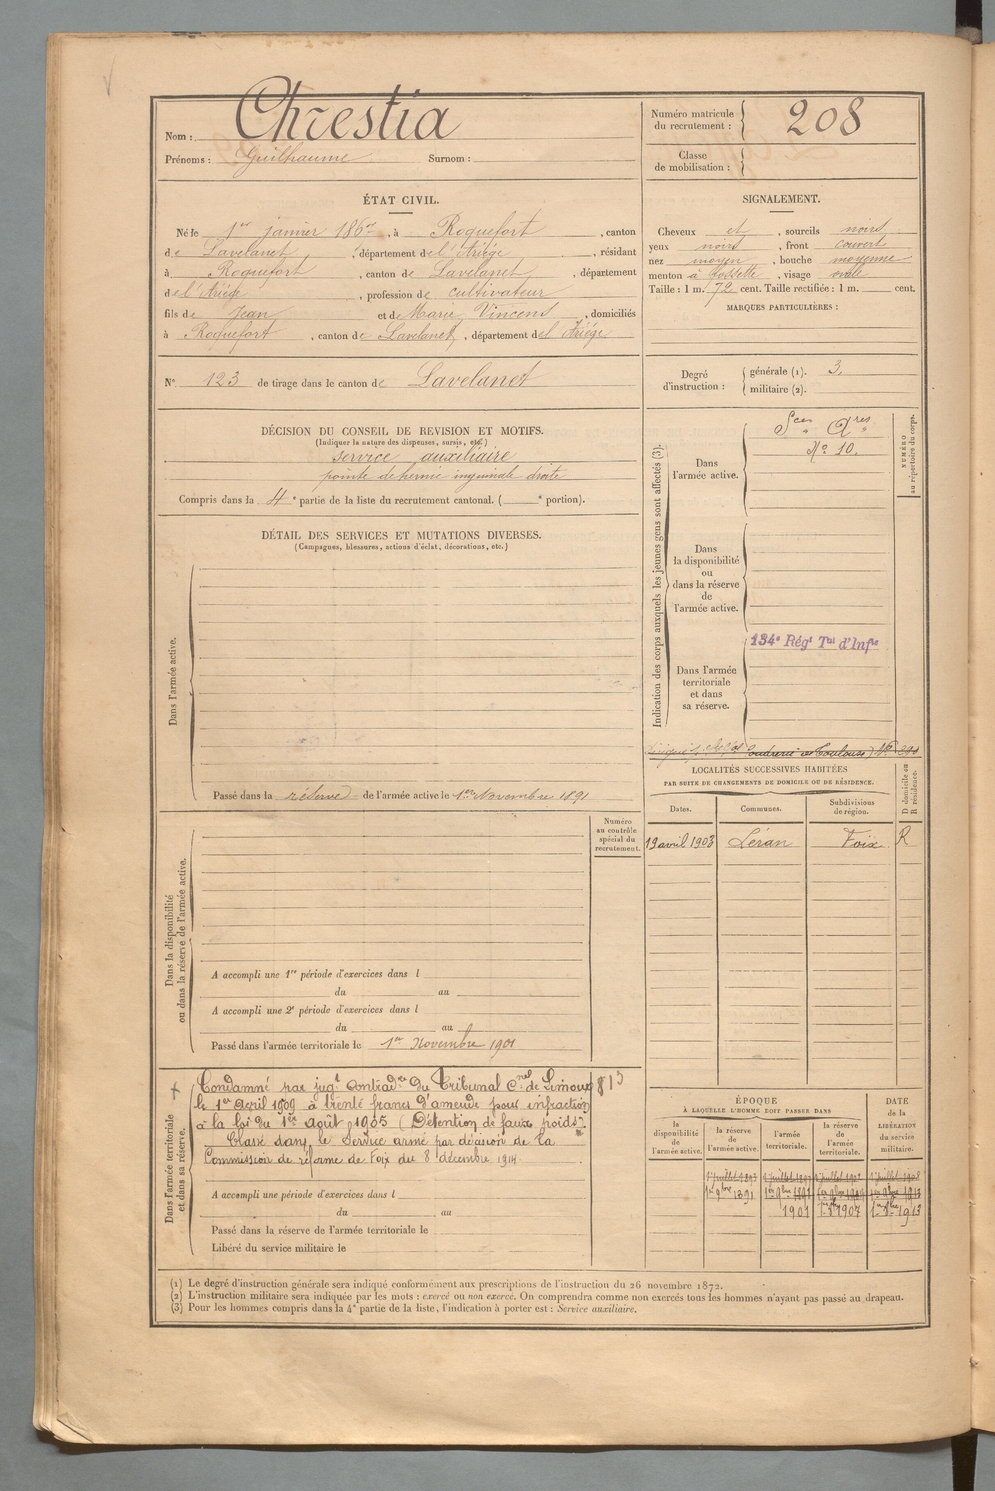 Nom : Chrestia
Prénoms : Guilhaume Surnom :
Numéro matricule du recrutement : 208
Classe de mobilisation :
ÉTAT CIVIL.
Né le 1er janvier 186 , à Roquefort , canton
de Lavelanet , département de l'Ariége , résidant
à Roquefort , canton de Lavelanet , département
de l'Ariége , profession de cultivateur
fils de Jean et de Marie Vincens , domiciliés
à Roquefort , canton de Lavelanet , département de l'Ariége
N° 123 de tirage dans le canton de Lavelanet
SIGNALEMENT.
Cheveux et , sourcils noirs
yeux noirs , front couvert
nez moyen , bouche moyenne
menton à fossette , visage ovale
Taille : 1 m. 72 cent. Taille rectifiée : 1 m. cent.
MARQUES PARTICULIÈRES :
Degré d'instruction : générale (1). 3.
militaire (2).
DÉCISION DU CONSEIL DE REVISION ET MOTIFS.
(Indiquer la nature des dispenses, sursis, etc.)
service auxiliaire
pointe de hernie inguinale droite
Compris dans la 4e partie de la liste du recrutement cantonal. ( e portion).
DÉTAIL DES SERVICES ET MUTATIONS DIVERSES.
(Campagnes, blessures, actions d'éclat, décorations, etc.)
Dans l'armée active.
Passé dans la réserve de l'armée active le 1er Novembre 1891
Indication des corps auxquels les jeunes gens sont affectés (3).
Dans l'armée active.
Sces Ares
No 10.
NUMÉRO au répertoire du corps.
Dans la disponibilité ou dans la réserve de l'armée active.
Dans l'armée territoriale et dans sa réserve.
134e Régt Tal d'Infie
Poudrerie de Toulouse
LOCALITÉS SUCCESSIVES HABITÉES
PAR SUITE DE CHANGEMENTS DE DOMICILE OU DE RÉSIDENCE.
D domicile ou R résidence.
Dates. Communes. Subdivisions de région.
19 avril 1903 Léran Foix R
Dans la disponibilité ou dans la réserve de l'armée active.
Numéro au contrôle spécial du recrutement.
A accompli une 1re période d'exercices dans l
du au
A accompli une 2e période d'exercices dans l
du au
Passé dans l'armée territoriale le 1er Novembre 1901
Dans l'armée territoriale et dans sa réserve.
Condamné par jugt contradre du Tribunal Cnel de Limoux 813
le 1er Avril 1909 à trente francs d'amende pour infraction
à la loi du 1er août 1905 (Détention de faux poids)
Classé dans le Service armé par décision de la
Commission de réforme de Foix du 8 décembre 1914.
A accompli une période d'exercices dans l
du au
Passé dans la réserve de l'armée territoriale le
Libéré du service militaire le
ÉPOQUE
À LAQUELLE L'HOMME DOIT PASSER DANS
DATE de la LIBÉRATION du service militaire.
la disponibilité de l'armée active.
la réserve de l'armée active.
l'armée territoriale.
la réserve de l'armée territoriale.
1er 9bre 1891
1901 1er 9bre 1907 1er 9bre 1913
(1) Le degré d'instruction générale sera indiqué conformément aux prescriptions de l'instruction du 26 novembre 1872.
(2) L'instruction militaire sera indiquée par les mots : exercé ou non exercé. On comprendra comme non exercés tous les hommes n'ayant pas passé au drapeau.
(3) Pour les hommes compris dans la 4e partie de la liste, l'indication à porter est : Service auxiliaire.